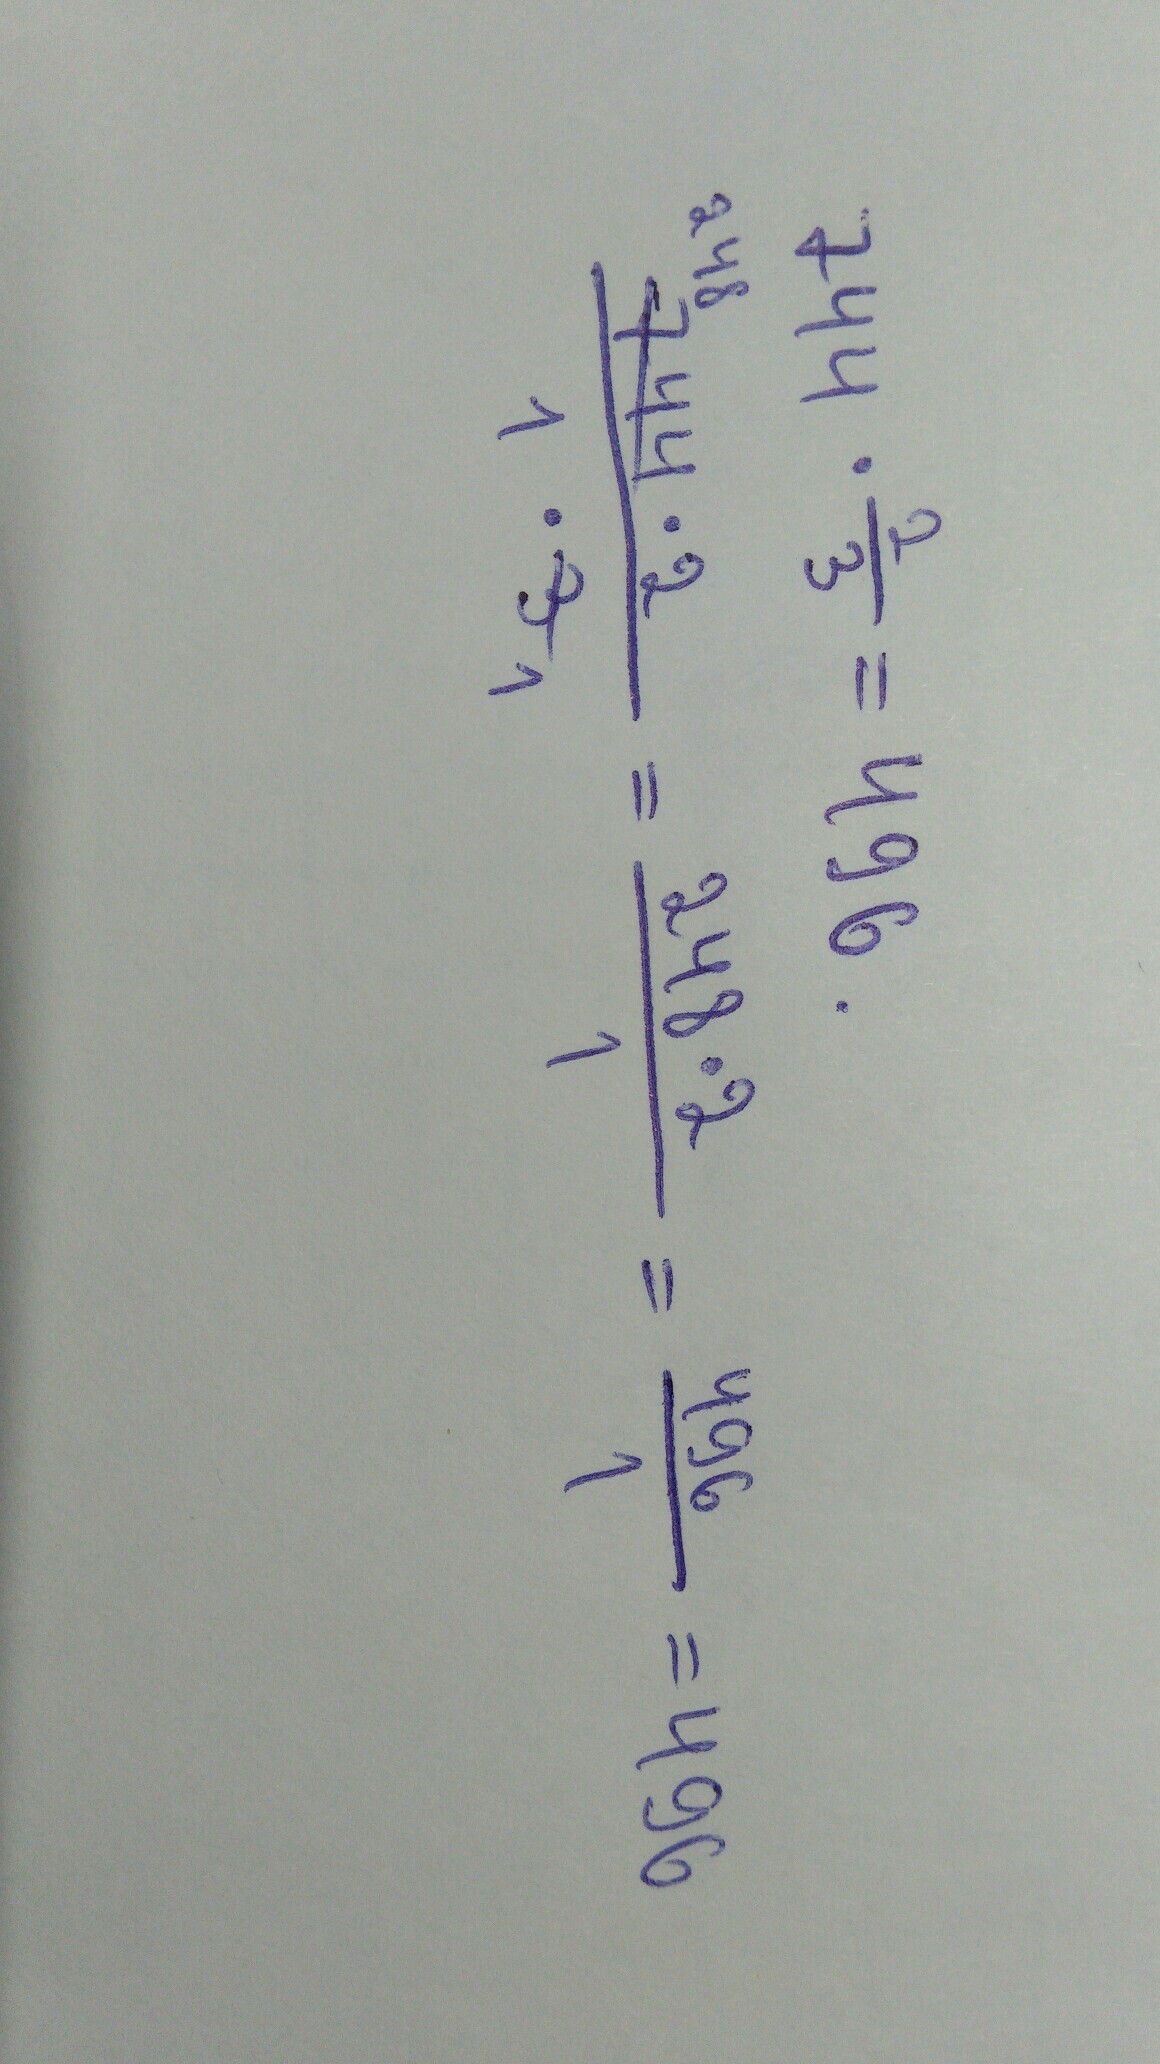 744 · 2/3 = 496.
248
744 · 2 / 1 · 3 1 = 248 · 2 / 1 = 496 / 1 = 496